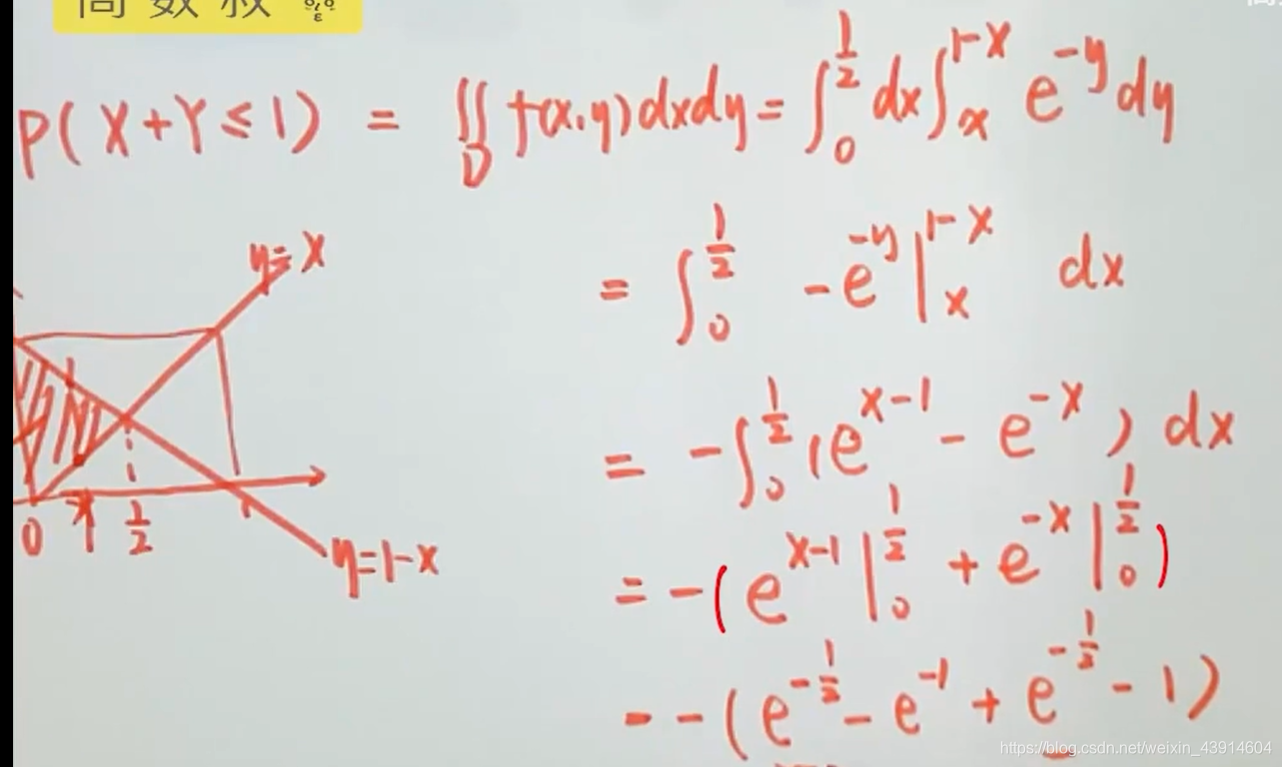 高数叔
P(X+Y≤1) = ∬_D f(x,y)dxdy = ∫_0^{1/2} dx ∫_x^{1-x} e^{-y} dy
= ∫_0^{1/2} -e^{-y} |_x^{1-x} dx
= -∫_0^{1/2} (e^{x-1} - e^{-x}) dx
= -(e^{x-1} |_0^{1/2} + e^{-x} |_0^{1/2})
= -(e^{-1/2} - e^{-1} + e^{-1/2} - 1)
y=x
0
1/2
y=1-x
https://blog.csdn.net/weixin_43914604